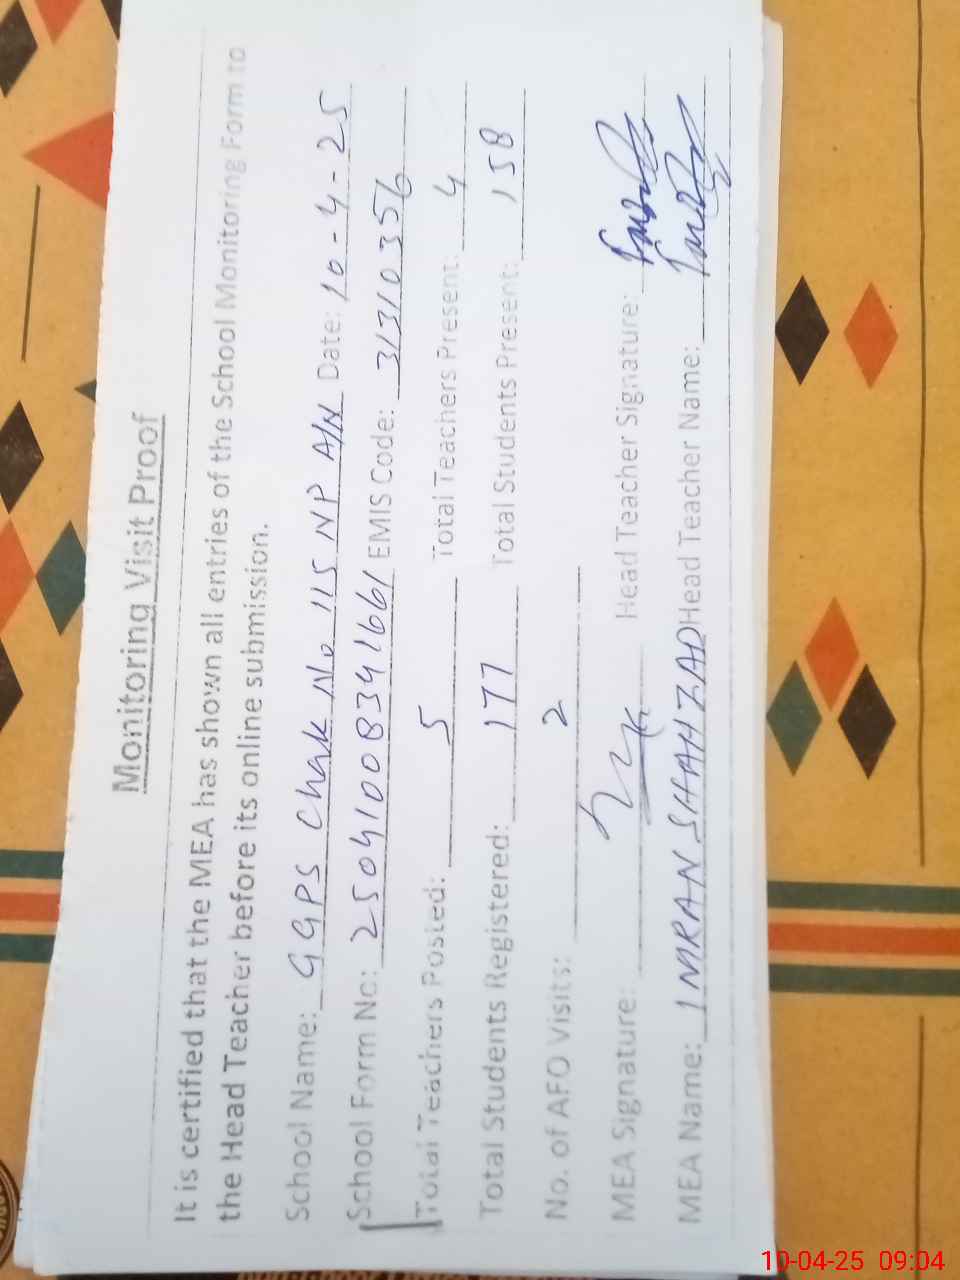 Monitoring Visit Proof
It is certified that the MEA has shown all entries of the School Monitoring Form to
the Head Teacher before its online submission.
School Name: GGPS Chak No 115 NP A/N Date: 10-4-25
School Form No: 25041008341661 EMIS Code: 31310356
Total Teachers Posted: 5 Total Teachers Present: 4
Total Students Registered: 177 Total Students Present: 158
No. of AFO Visits: 2
MEA Signature: Head Teacher Signature:
MEA Name: IMRAN SHAHZAD Head Teacher Name:
10-04-25 09:04